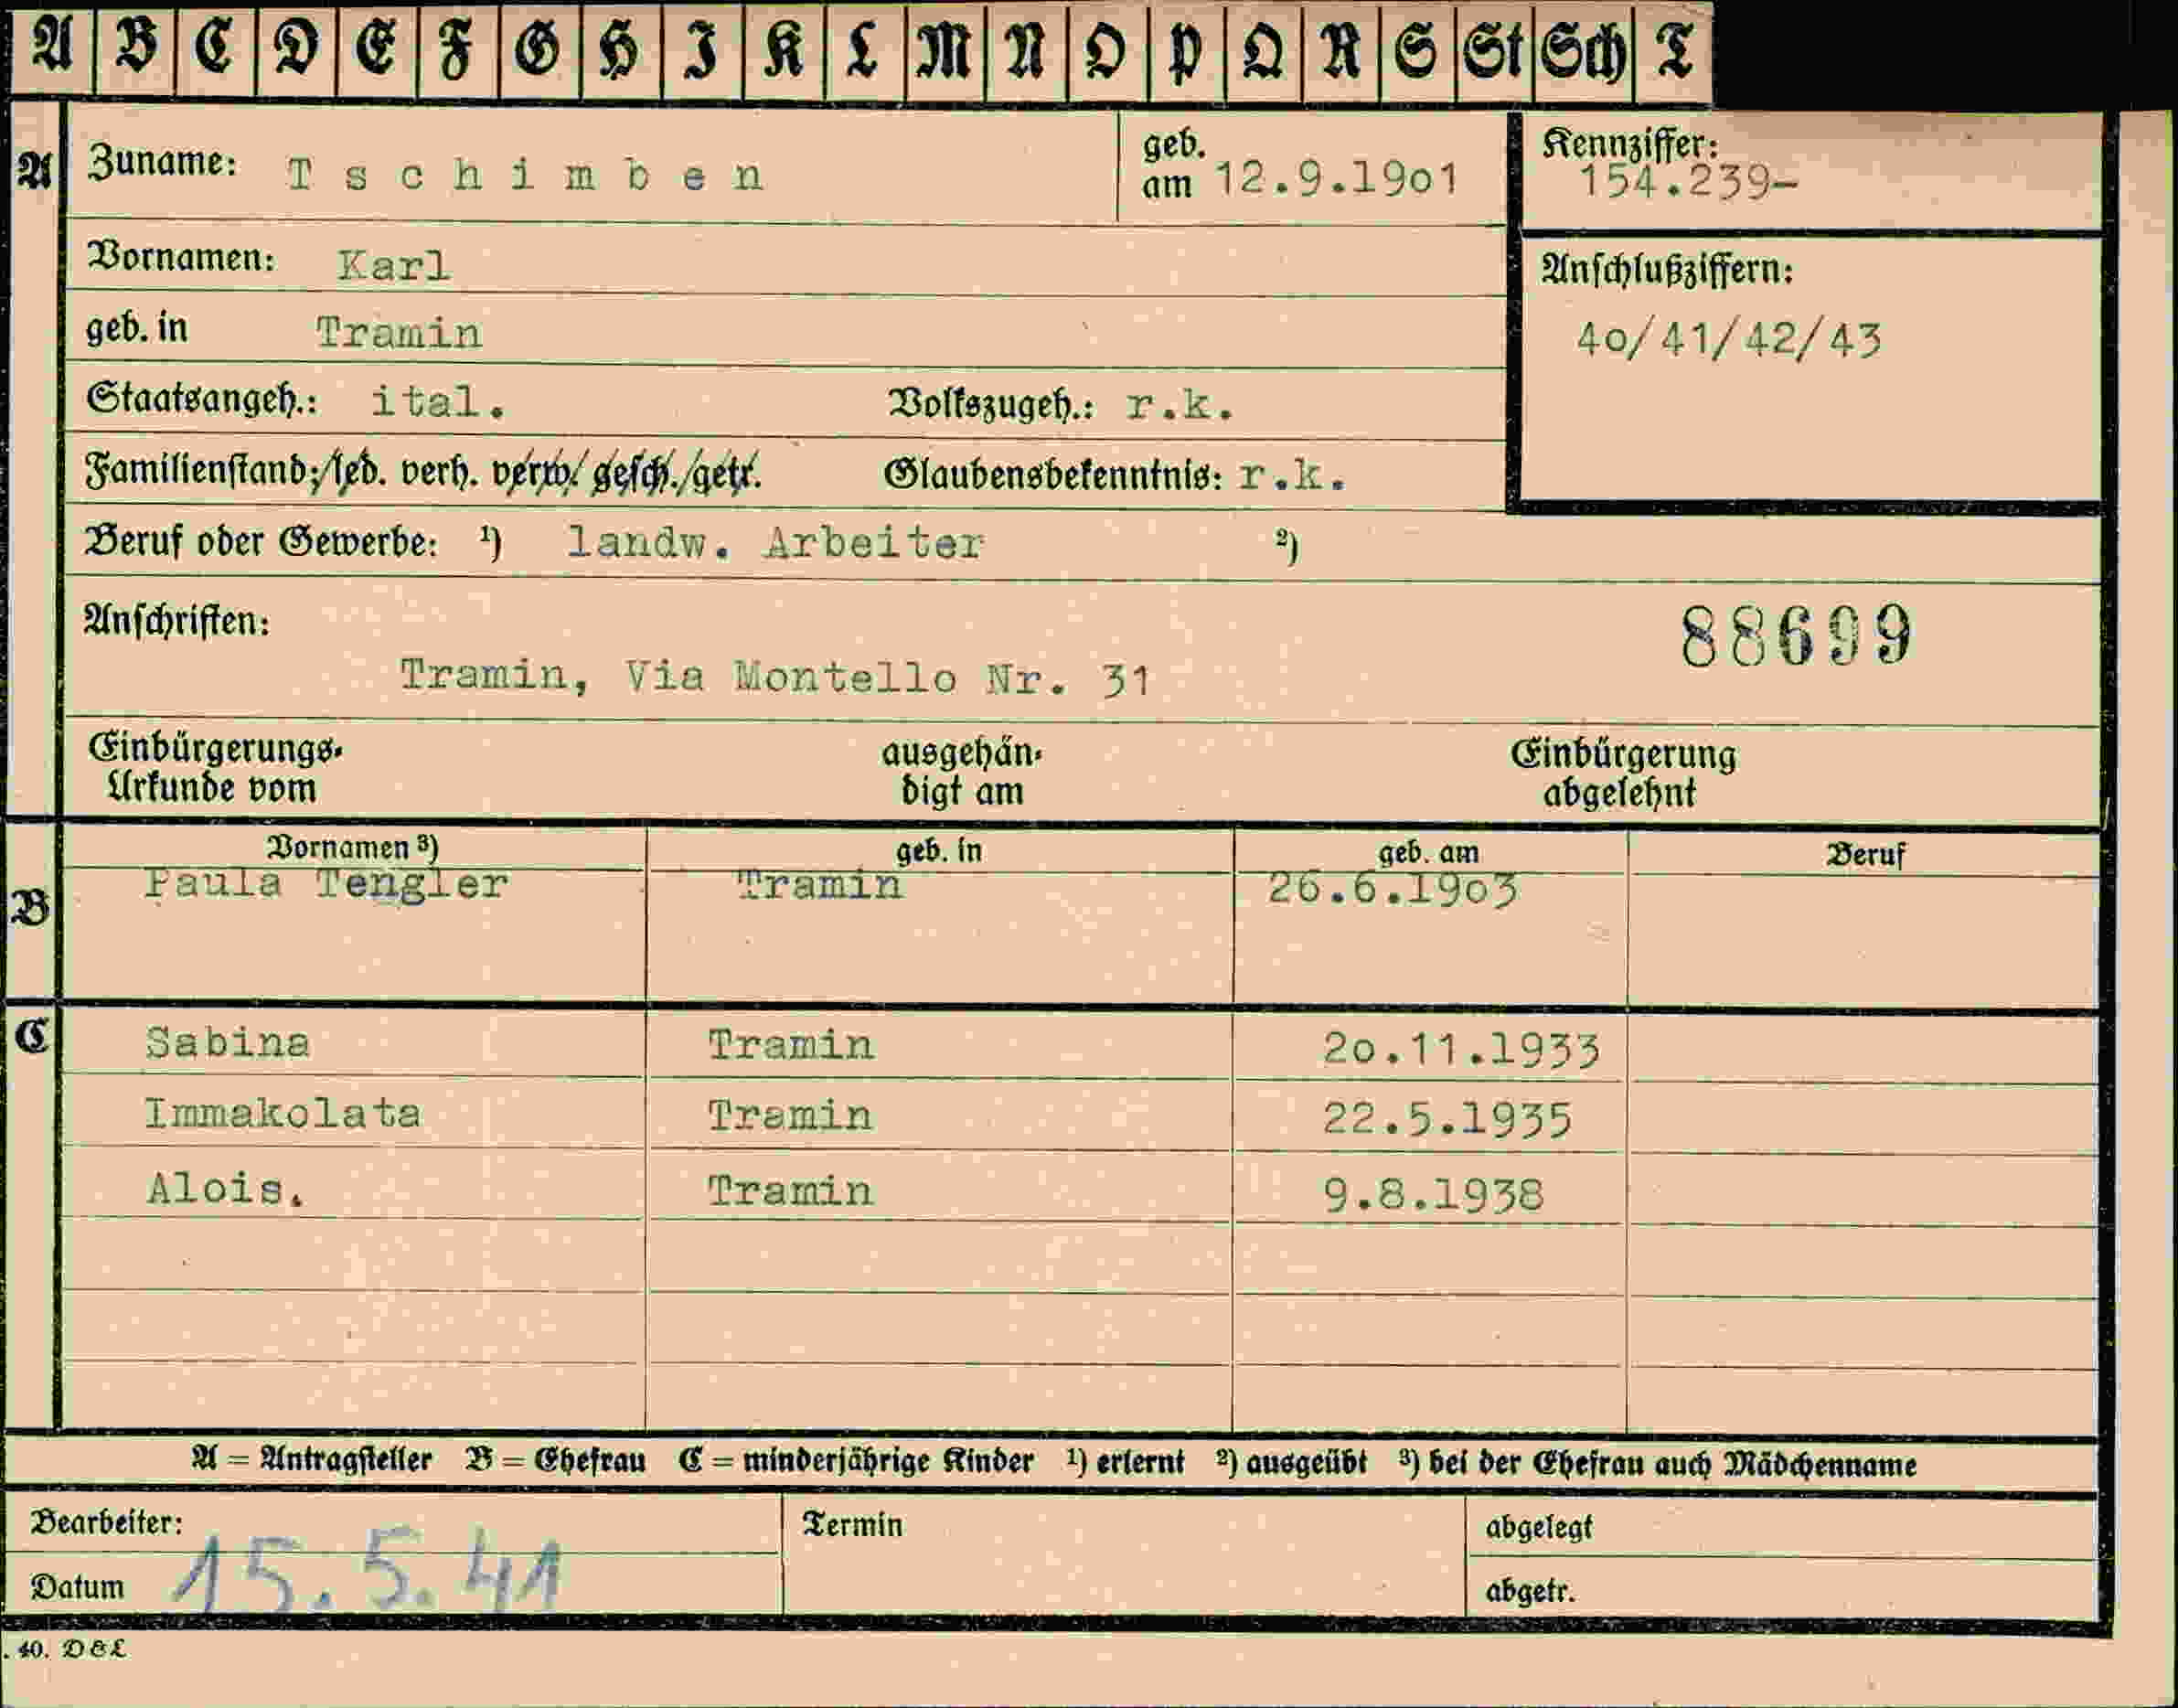 A B C D E F G H I K L M N O P Q R S St Sch T
A Zuname: Tschimben geb. am 12.9.19o1 Kennziffer: 154.239-
Vornamen: Karl
Anschlußziffern:
geb. in Tramin
4o/41/42/43
Staatsangeh.: ital. Volkszugeh.: r.k.
Familienstand: led. verh. verw. gesch. getr. Glaubensbekenntnis: r.k.
Beruf oder Gewerbe: 1) landw. Arbeiter 2)
Anschriften:
88699
Tramin, Via Montello Nr. 31
Einbürgerungs- ausgehän- Einbürgerung
Urkunde vom digt am abgelehnt
Vornamen 3) geb. in geb. am Beruf
B Paula Tengler Tramin 26.6.19o3
C Sabina Tramin 2o.11.1933
Immakolata Tramin 22.5.1935
Alois. Tramin 9.8.1938
A = Antragsteller B = Ehefrau C = minderjährige Kinder 1) erlernt 2) ausgeübt 3) bei der Ehefrau auch Mädchenname
Bearbeiter: Termin abgelegt
Datum 15.5.41 abgetr.
. 40. DEL